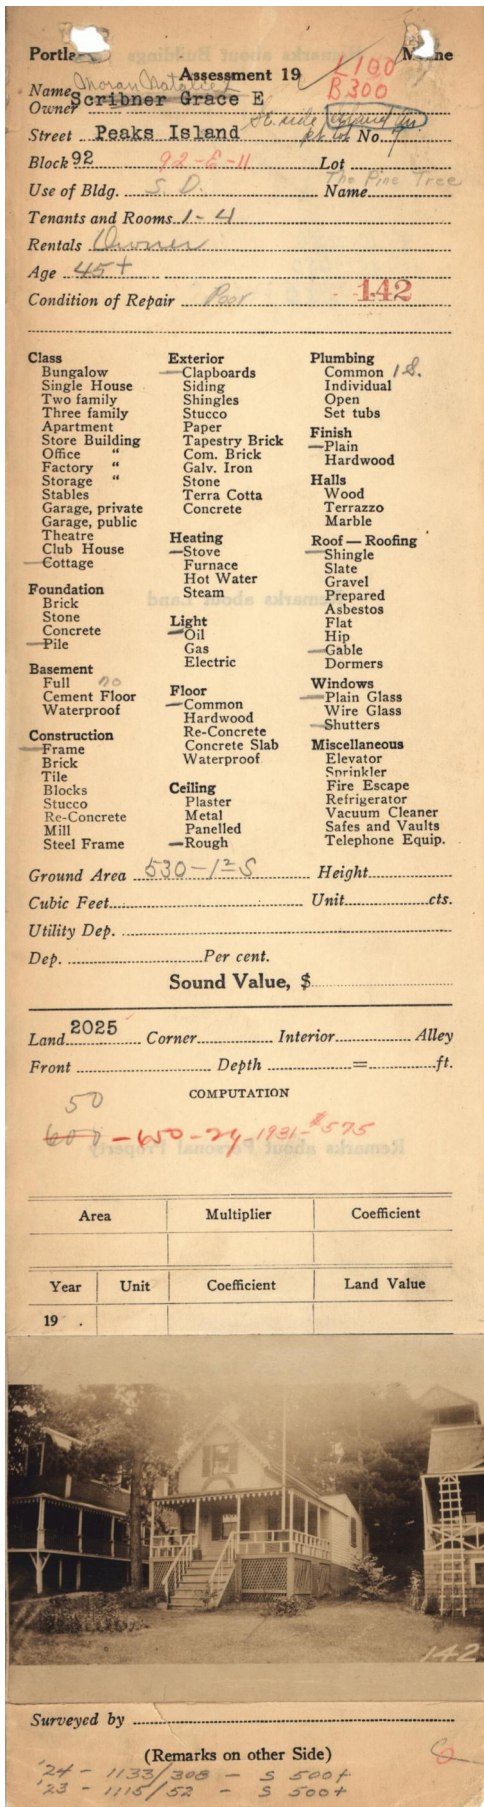 Portla ne
Assessment 19
L 100
B 300
Name Moran Natalie
Owner Scribner Grace E
St. side Island Av
Street Peaks Island pt lot No. 7
Block 92 92-E-11 Lot
Use of Bldg. S. D. Name The Pine Tree
Tenants and Rooms 1-4
Rentals Owner
Age 45+
Condition of Repair Poor 142
Class
Bungalow
Single House
Two family
Three family
Apartment
Store Building
Office "
Factory "
Storage "
Stables
Garage, private
Garage, public
Theatre
Club House
Cottage
Foundation
Brick
Stone
Concrete
Pile
Basement
Full no
Cement Floor
Waterproof
Construction
Frame
Brick
Tile
Blocks
Stucco
Re-Concrete
Mill
Steel Frame
Exterior
Clapboards
Siding
Shingles
Stucco
Paper
Tapestry Brick
Com. Brick
Galv. Iron
Stone
Terra Cotta
Concrete
Heating
Stove
Furnace
Hot Water
Steam
Light
Oil
Gas
Electric
Floor
Common
Hardwood
Re-Concrete
Concrete Slab
Waterproof
Ceiling
Plaster
Metal
Panelled
Rough
Plumbing
Common 1 S.
Individual
Open
Set tubs
Finish
Plain
Hardwood
Halls
Wood
Terrazzo
Marble
Roof — Roofing
Shingle
Slate
Gravel
Prepared
Asbestos
Flat
Hip
Gable
Dormers
Windows
Plain Glass
Wire Glass
Shutters
Miscellaneous
Elevator
Sprinkler
Fire Escape
Refrigerator
Vacuum Cleaner
Safes and Vaults
Telephone Equip.
Ground Area 530-1½ S Height
Cubic Feet Unit cts.
Utility Dep.
Dep. Per cent.
Sound Value, $
Land 2025 Corner Interior Alley
Front Depth = ft.
COMPUTATION
50
600 - 650 - 24, 1931 - $575
Area Multiplier Coefficient
Year Unit Coefficient Land Value
19 .
142
Surveyed by
(Remarks on other Side)
'24 - 1133/308 - S 500+
'23 - 1115/52 - S 500+